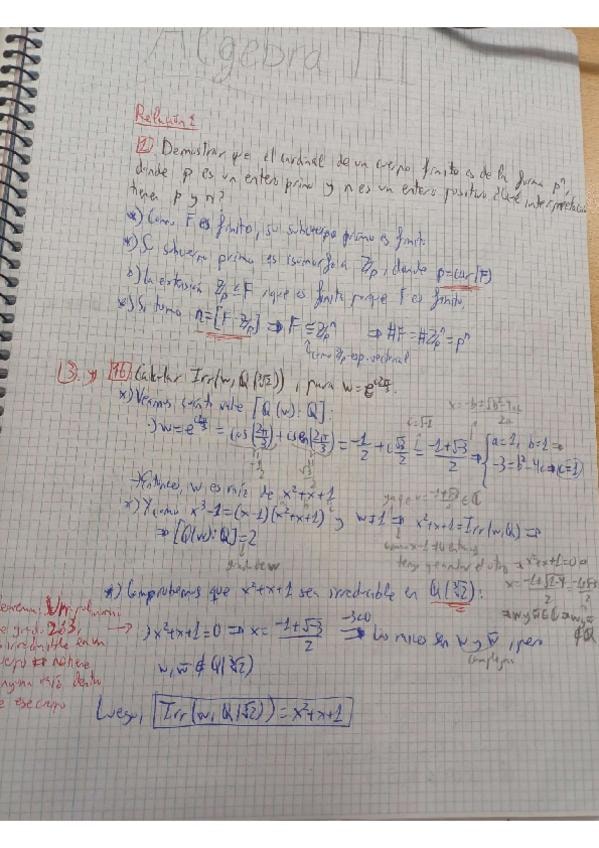 Algebra III
Relación 1
1 Demostrar que el cardinal de un cuerpo finito es de la forma pⁿ,
donde p es un entero primo y n es un entero positivo ¿Qué interpretación
tienen p y n?
*) Como F es finito, su subcuerpo primo es finito
*) Su subcuerpo primo es isomorfo a ℤp, donde p=car(F)
*) La extensión ℤp ≤ F sigue es finita porque F es finito.
*) Si tomo n=[F:ℤp] ⇒ F ≅ ℤpⁿ ⇒ #F = #ℤpⁿ = pⁿ
como ℤp-esp. vectorial
3. y 16 Calcular Irr(w, Q(∛2)), para w=e^(i2π/3).
*) Veamos cuánto vale [Q(w):Q]:
x = -b±√b²-4ac / 2a
i=√-1
·) w=e^(i2π/3) = cos(2π/3) + i sen(2π/3) = -1/2 + i √3/2 = -1+√-3 / 2 ⇒ { a=1, b=1 ⇒
-3=b²-4c ⇒ c=1
-1/2 √3/2
→ Entonces, w es raíz de x²+x+1
*) Y como x³-1=(x-1)(x²+x+1) y w≠1 ⇒ x²+x+1=Irr(w,Q) ⇒
⇒ [Q(w):Q]=2
grado de w
x²+x+1=0
*) Comprobemos que x²+x+1 sea irreducible en Q(∛2):
Teorema: Un polinomio
de grado 2 ó 3,
es irreducible en un
cuerpo no tiene
ninguna raíz dentro
de ese cuerpo
→ ·) x²+x+1=0 ⇒ x= -1±√-3 / 2 -3<0 ⇒ Lo único son w y w̄, pero
complejas
w, w̄ ∉ Q(∛2)
Luego, Irr(w, Q(∛2)) = x²+x+1